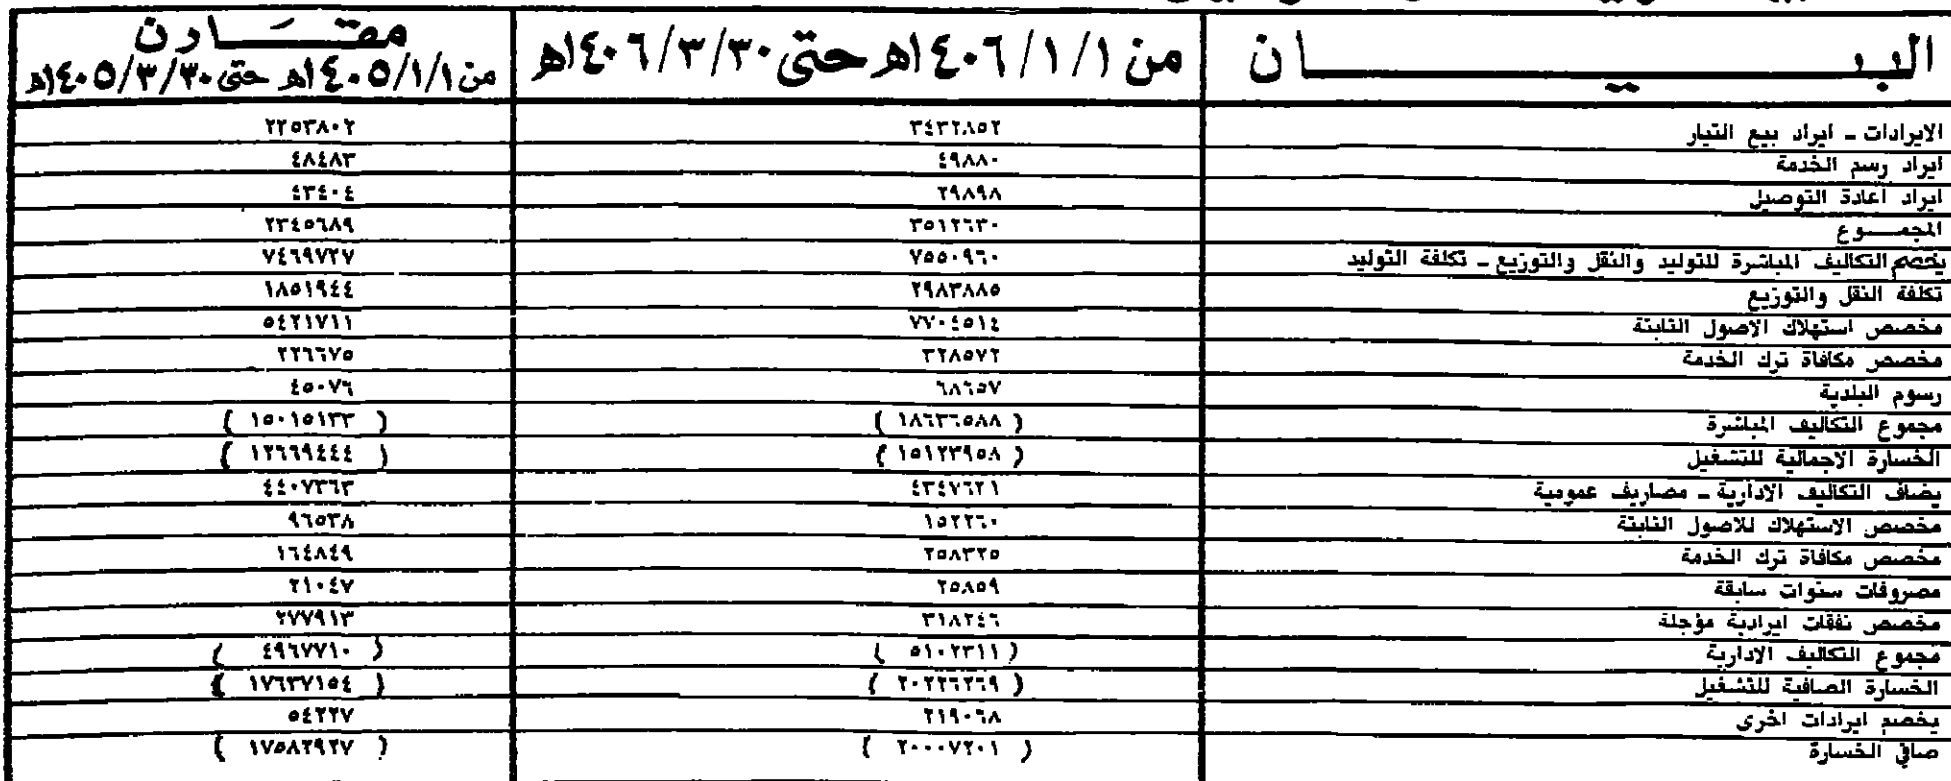 البيـــان من ١/١/١٤٠٦هـ حتى ٣٠/٣/١٤٠٦هـ مقـــارن
من ١/١/١٤٠٥هـ حتى ٣٠/٣/١٤٠٥هـ
الايرادات ـ ايراد بيع التيار ٣٤٣٢٨٥٢ ٢٢٥٣٨٠٢
ايراد رسم الخدمة ٤٩٨٨٠ ٤٨٤٨٣
ايراد اعادة التوصيل ٢٩٨٩٨ ٤٣٤٠٤
المجمـــوع ٣٥١٢٦٣٠ ٢٣٤٥٦٨٩
يخصم التكاليف المباشرة للتوليد والنقل والتوزيع ـ تكلفة التوليد ٧٥٥٠٩٦٠ ٧٤٦٩٧٢٧
تكلفة النقل والتوزيع ٢٩٨٣٨٨٥ ١٨٥١٩٤٤
مخصص استهلاك الاصول الثابتة ٧٧٠٤٥١٤ ٥٤٢١٧١١
مخصص مكافاة ترك الخدمة ٣٢٨٥٧٢ ٢٢٦٦٧٥
رسوم البلدية ٦٨٦٥٧ ٤٥٠٧٦
مجموع التكاليف المباشرة ( ١٨٦٣٦٥٨٨ ) ( ١٥٠١٥١٣٣ )
الخسارة الاجمالية للتشغيل ( ١٥١٢٣٩٥٨ ) ( ١٢٦٦٩٤٤٤ )
يضاف التكاليف الادارية ـ مصاريف عمومية ٤٣٤٧٦٢١ ٤٤٠٧٣٦٣
مخصص الاستهلاك للاصول الثابتة ١٥٢٢٦٠ ٩٦٥٣٨
مخصص مكافاة ترك الخدمة ٢٥٨٣٢٥ ١٦٤٨٤٩
مصروفات سنوات سابقة ٢٥٨٥٩ ٢١٠٤٧
مخصص نفقات ايرادية مؤجلة ٣١٨٢٤٦ ٢٧٧٩١٣
مجموع التكاليف الادارية ( ٥١٠٢٣١١ ) ( ٤٩٦٧٧١٠ )
الخسارة الصافية للتشغيل ( ٢٠٢٢٦٢٦٩ ) ( ١٧٦٣٧١٥٤ )
يخصم ايرادات اخرى ٢١٩٠٦٨ ٥٤٢٢٧
صافي الخسارة ( ٢٠٠٠٧٢٠١ ) ( ١٧٥٨٢٩٢٧ )